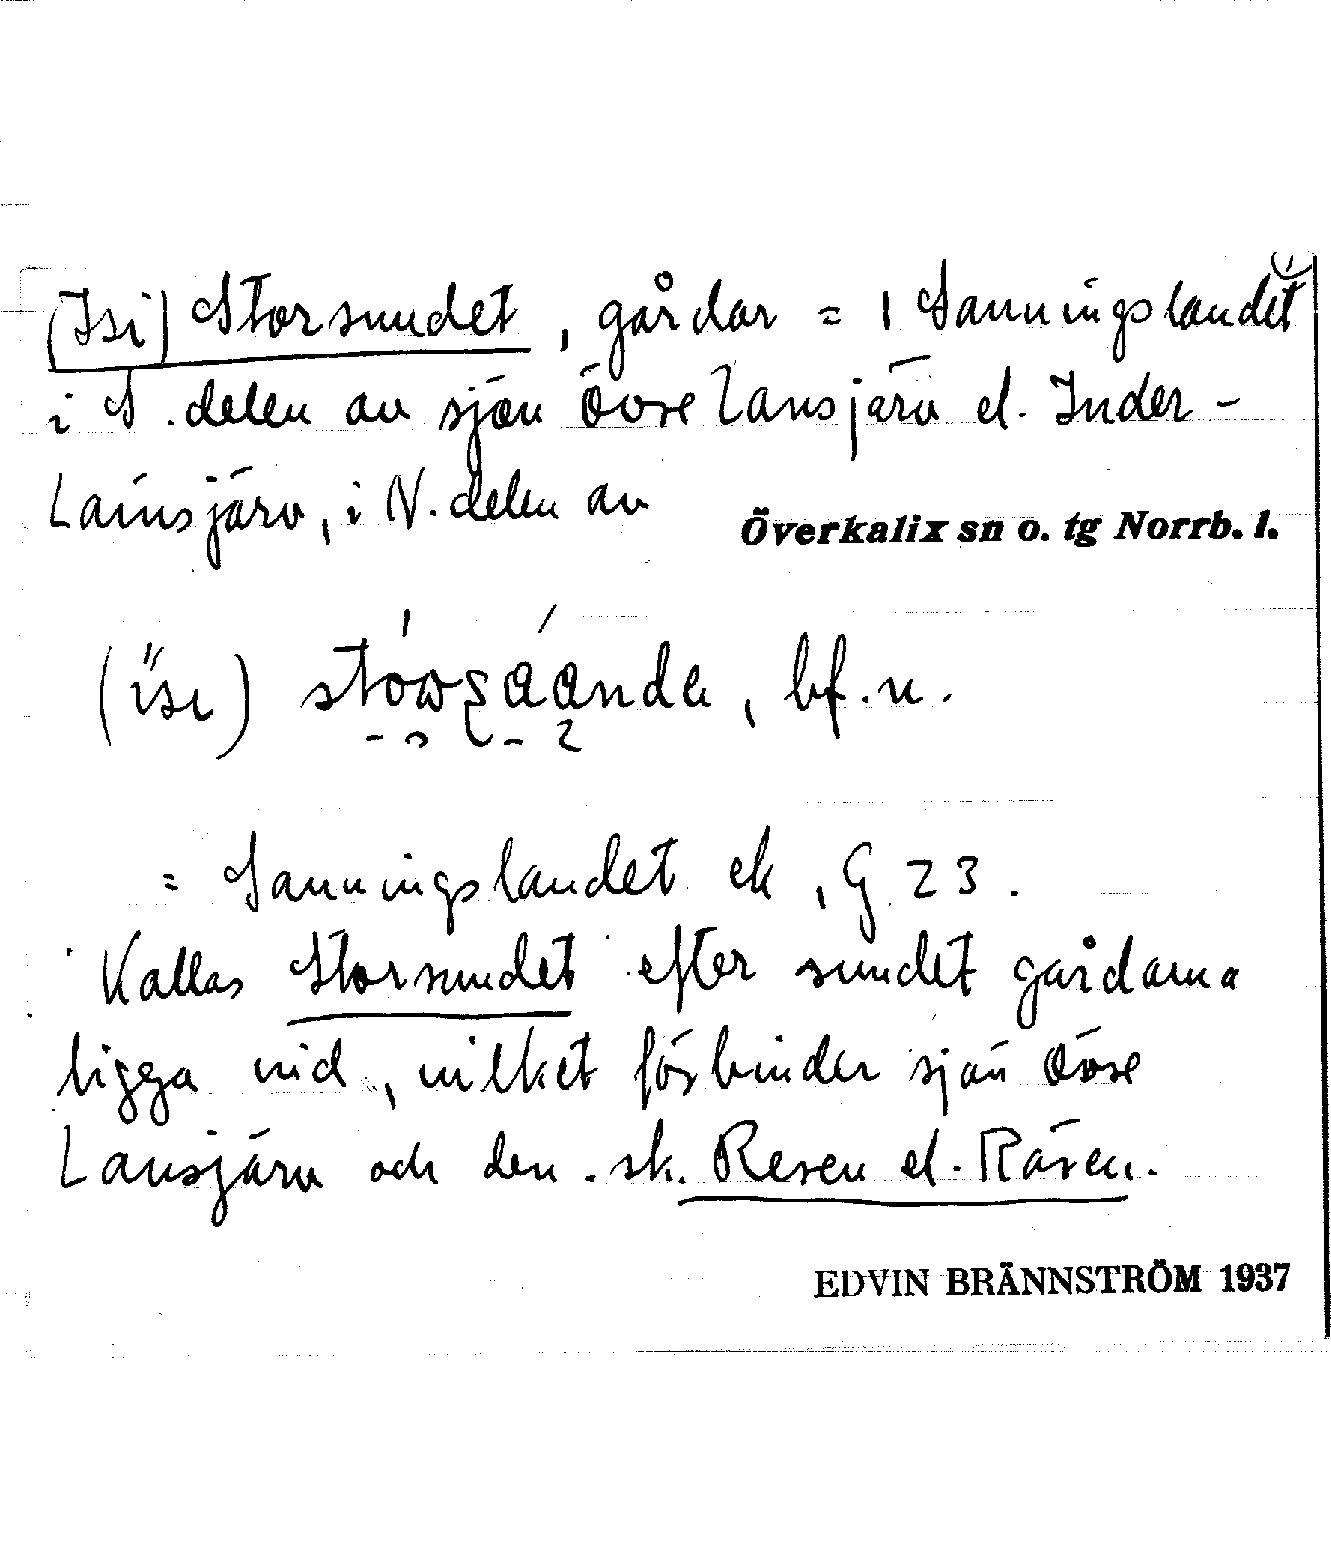 (Isi) Storsundet, gårdar = 1 Sanningslandet
i S. delen av sjön Övre Lansjärv el. Inder-
Lainsjärv, i N. delen av
Överkalix sn o. tg Norrb. l.
bf. n.
= Sanningslandet ek, G 23.
Kallas Storsundet efter sundet gårdarna
ligga vid, vilket förbinder sjön Övre
Lansjärv och den sk. Resen el. Räsen.
EDVIN BRÄNNSTRÖM 1937